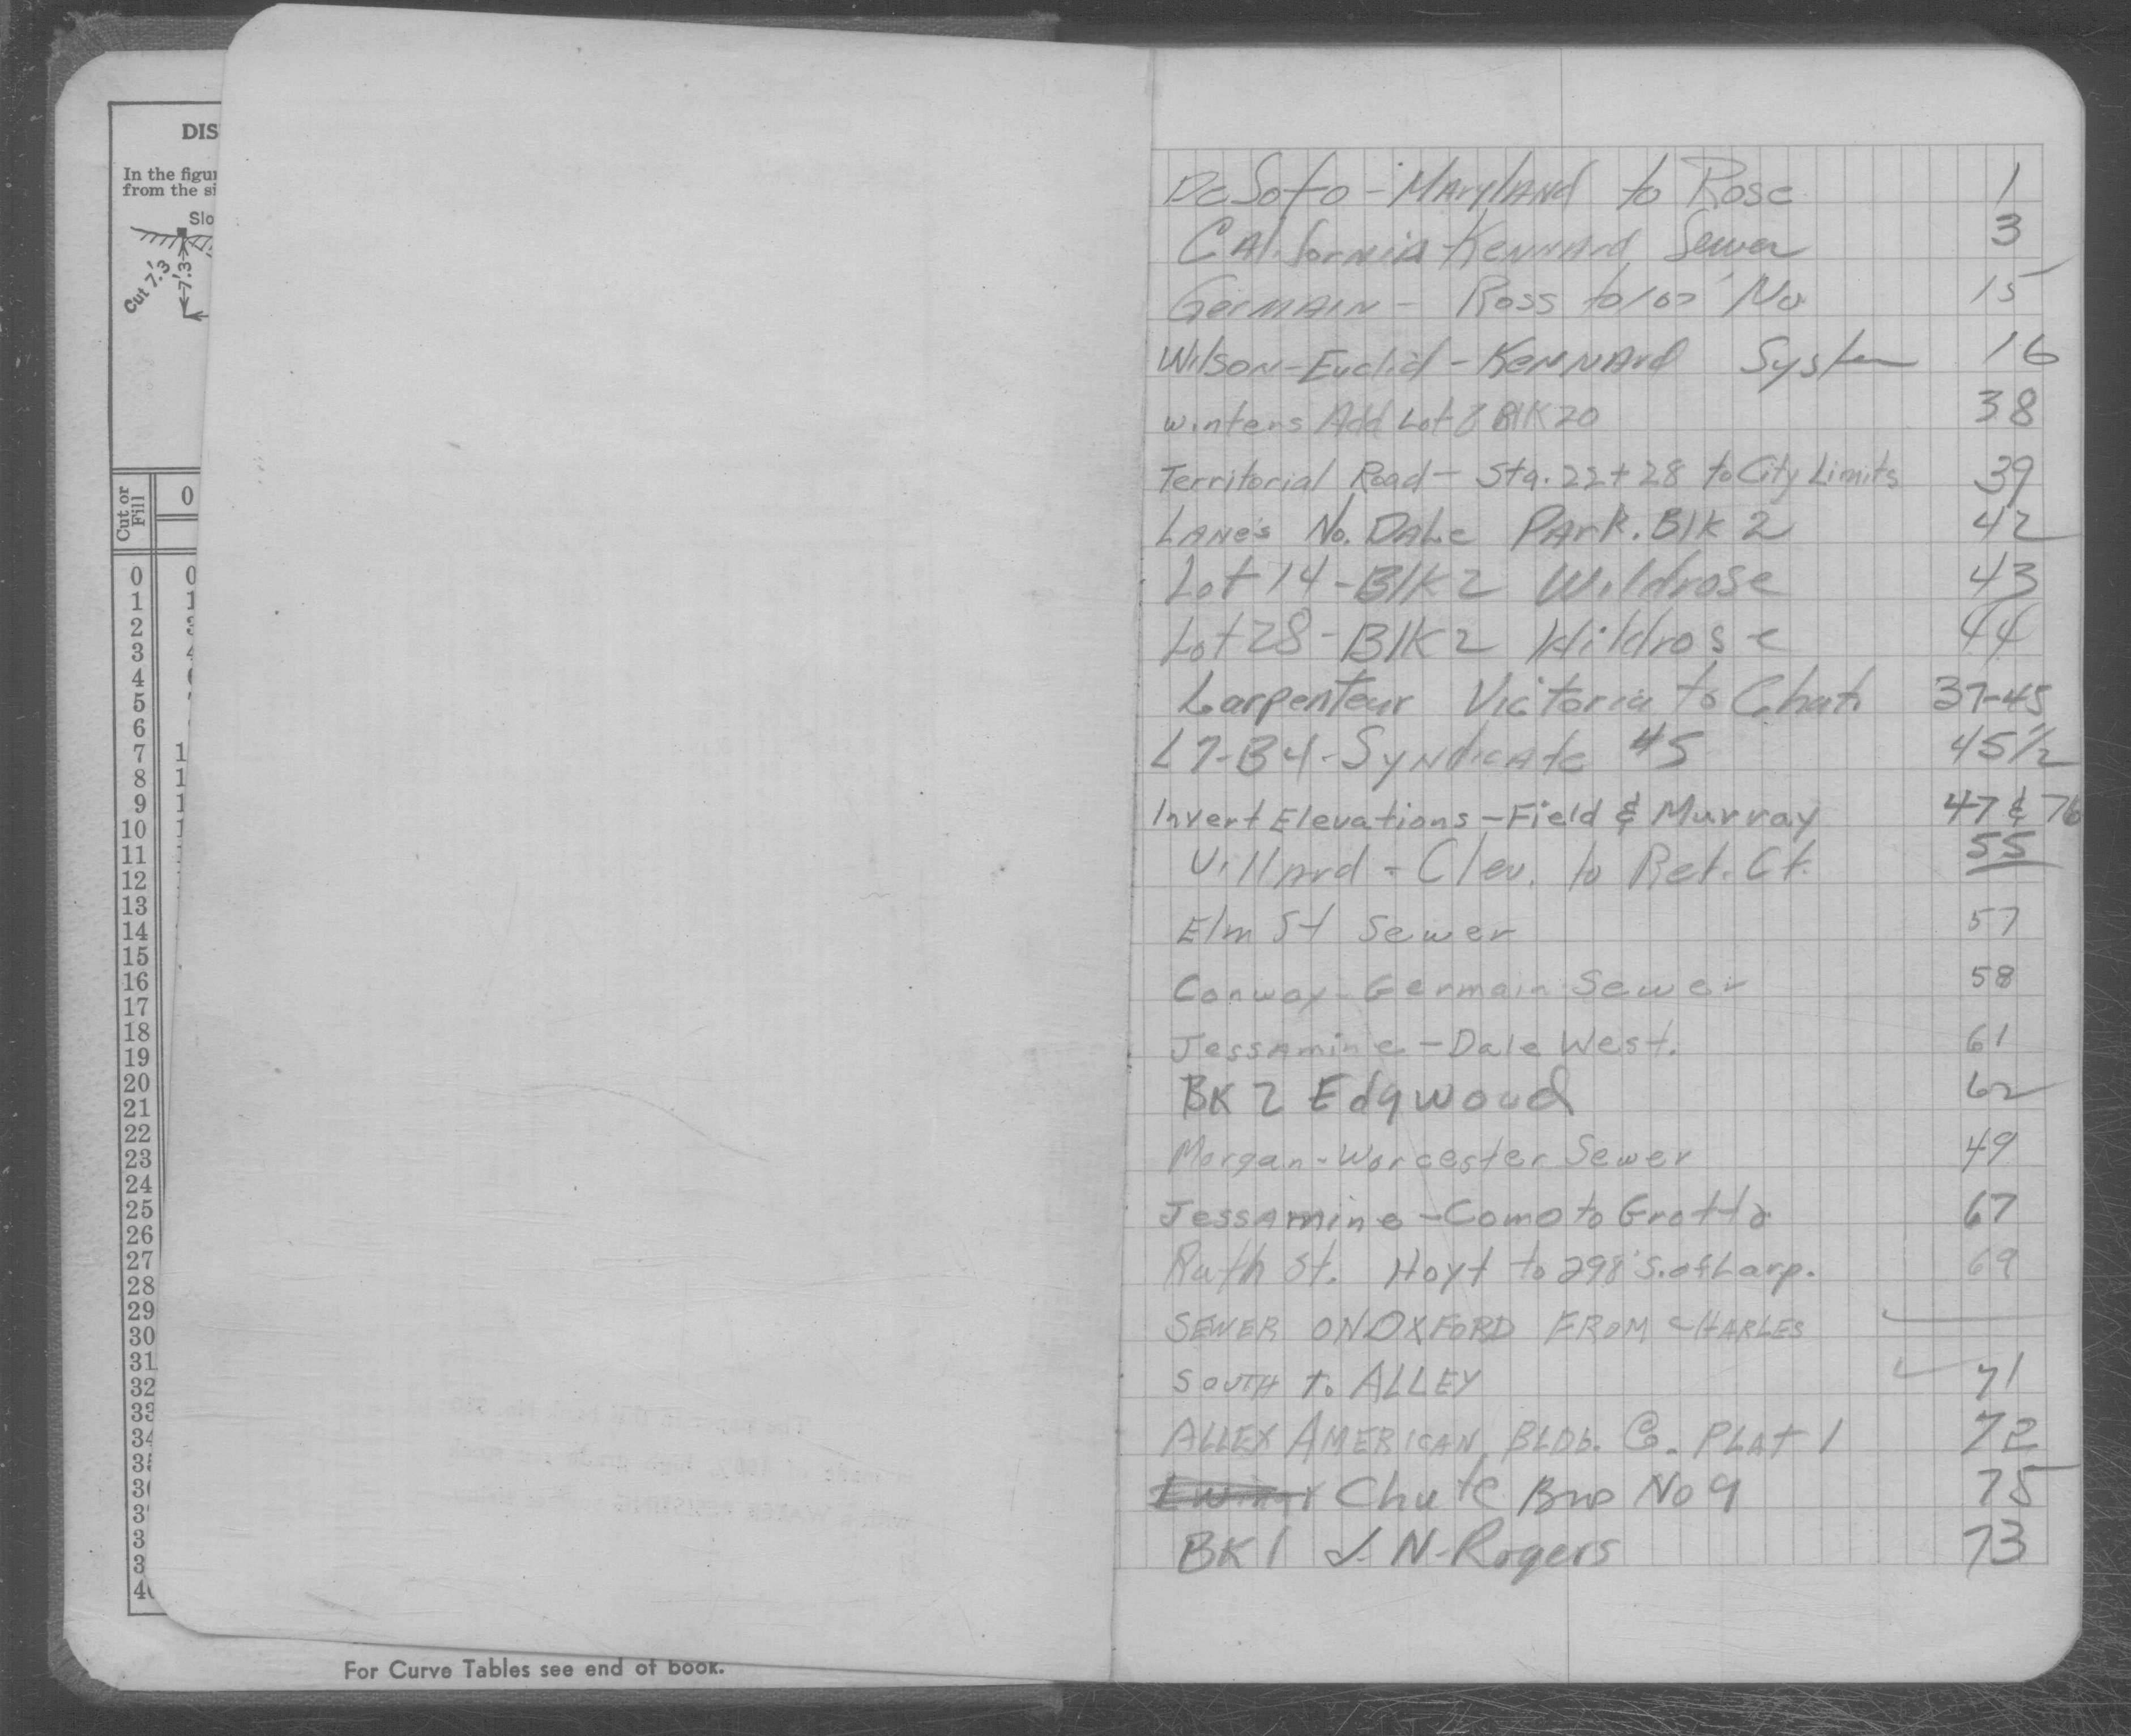 DIS
In the figur
from the si
Slo
Cut 7.'3
7.'3
Cut or Fill
0
0 0
1 1
2
3
4
5
6
7 1
8 1
9 1
10 1
11
12
13
14
15
16
17
18
19
20
21
22
23
24
25
26
27
28
29
30
31
32
33
34
35
36
3
3
3
40
For Curve Tables see end of book.
DeSoto - Maryland to Rose 1
California-Kennard Sewer 3
Germain - Ross to 100' No. 15
Wilson-Euclid-Kennard System 16
Winters Add Lot 8 Blk 20 38
Territorial Road - Sta. 22+28 to City Limits 39
Lane's No. Dale Park. Blk 2 42
Lot 14 - Blk 2 Wildrose 43
Lot 28 - Blk 2 Wildrose 44
Larpenteur Victoria to Chats 37-45
L7-B4-Syndicate #5 45 1/2
Invert Elevations - Field & Murray 47 & 76
Villard - Clev. to Ret. Ct. 55
Elm St Sewer 57
Conway-Germain Sewer 58
Jessamine - Dale West. 61
BK 2 Edgwood 62
Morgan-Worcester Sewer 49
Jessamine - Como to Grotto 67
Ruth St. Hoyt to 298' S. of Larp. 69
SEWER ON OXFORD FROM CHARLES
SOUTH To ALLEY 71
ALLEX AMERICAN BLDG. Co. PLAT 1 72
Chute Bro No 9 75
BK 1 J. N. Rogers 73